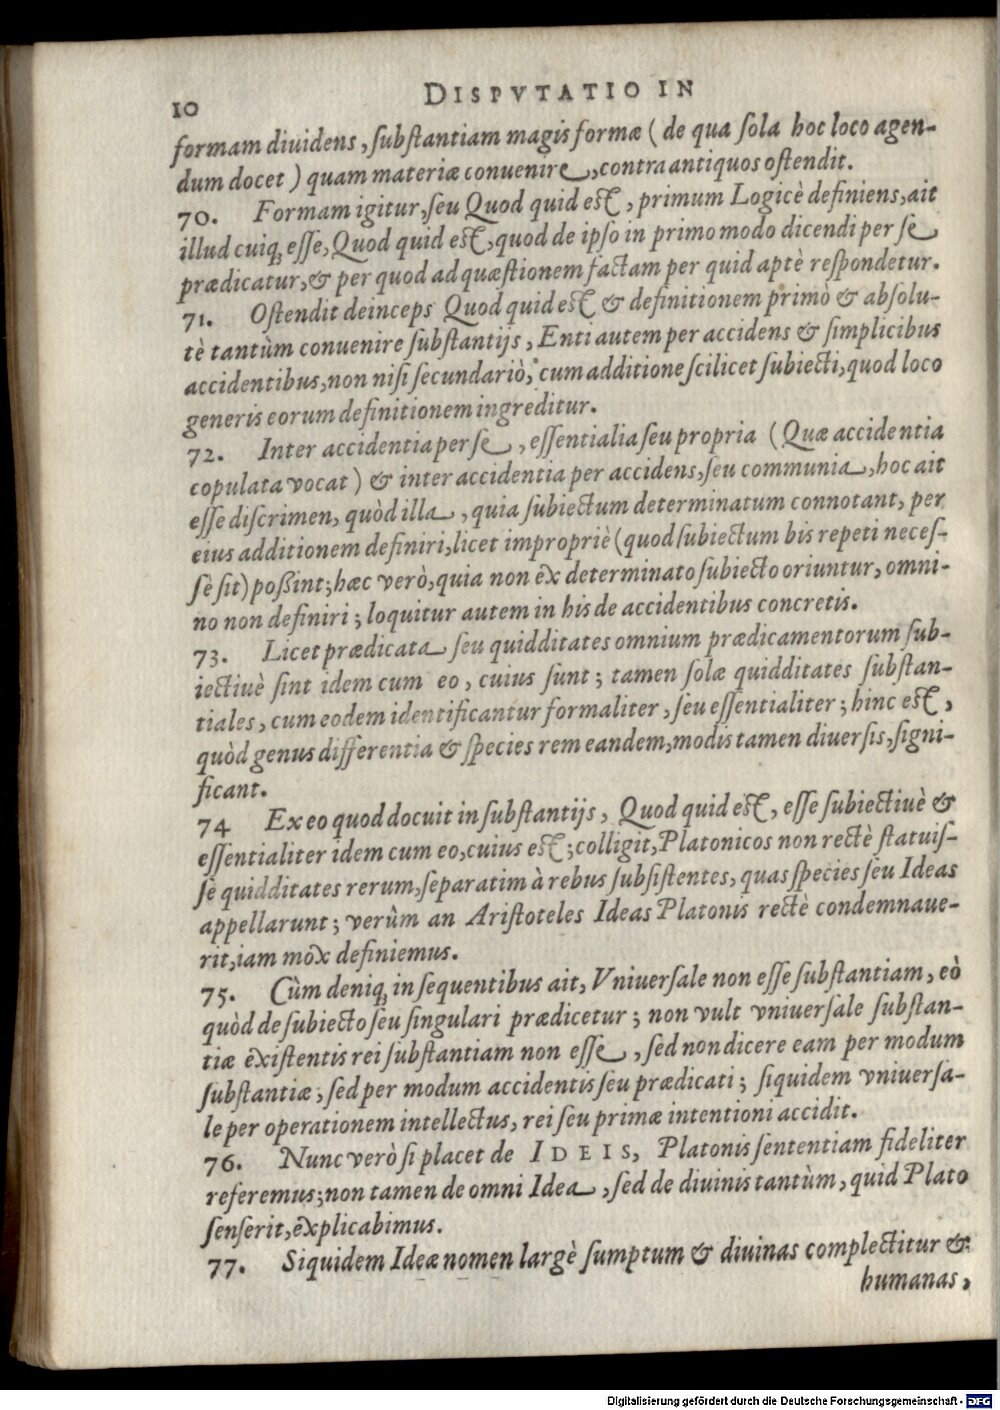 10 DISPVTATIO IN
formam diuidens, ſubſtantiam magis formæ (de qua ſola hoc loco agen-
dum docet) quam materiæ conuenire, contra antiquos oſtendit.
70. Formam igitur, ſeu Quod quid eſt, primum Logicè definiens, ait
illud cuiq; eſſe, Quod quid eſt, quod de ipſo in primo modo dicendi per ſe
prædicatur, & per quod ad quæſtionem factam per quid aptè reſpondetur.
71. Oſtendit deinceps Quod quid eſt & definitionem primò & abſolu-
tè tantùm conuenire ſubſtantijs, Enti autem per accidens & ſimplicibus
accidentibus, non niſi ſecundariò, cum additione ſcilicet ſubiecti, quod loco
generis eorum definitionem ingreditur.
72. Inter accidentia per ſe, eſſentialia ſeu propria (Quæ accidentia
copulata vocat) & inter accidentia per accidens, ſeu communia, hoc ait
eſſe diſcrimen, quòd illa, quia ſubiectum determinatum connotant, per
eius additionem definiri, licet impropriè (quod ſubiectum bis repeti neceſ-
ſe ſit) poßint; hæc verò, quia non ex determinato ſubiecto oriuntur, omni-
no non definiri; loquitur autem in his de accidentibus concretis.
73. Licet prædicata ſeu quidditates omnium prædicamentorum ſub-
iectiuè ſint idem cum eo, cuius ſunt; tamen ſolæ quidditates ſubſtan-
tiales, cum eodem identificantur formaliter, ſeu eſſentialiter; hinc eſt,
quòd genus differentia & ſpecies rem eandem, modis tamen diuerſis, ſigni-
ficant.
74 Ex eo quod docuit in ſubſtantijs, Quod quid eſt, eſſe ſubiectiuè &
eſſentialiter idem cum eo, cuius eſt; colligit, Platonicos non rectè ſtatuiſ-
ſe quidditates rerum, ſeparatim à rebus ſubſiſtentes, quas ſpecies ſeu Ideas
appellarunt; verùm an Ariſtoteles Ideas Platonis rectè condemnaue-
rit, iam mox definiemus.
75. Cùm deniq; in ſequentibus ait, Vniuerſale non eſſe ſubſtantiam, eò
quòd de ſubiecto ſeu ſingulari prædicetur; non vult vniuerſale ſubſtan-
tiæ exiſtentis rei ſubſtantiam non eſſe, ſed non dicere eam per modum
ſubſtantiæ, ſed per modum accidentis ſeu prædicati; ſiquidem vniuerſa-
le per operationem intellectus, rei ſeu primæ intentioni accidit.
76. Nunc verò ſi placet de IDEIS, Platonis ſententiam fideliter
referemus; non tamen de omni Idea, ſed de diuinis tantùm, quid Plato
ſenſerit, explicabimus.
77. Siquidem Ideæ nomen largè ſumptum & diuinas complectitur &
humanas,
Digitalisierung gefördert durch die Deutsche Forschungsgemeinschaft - DFG